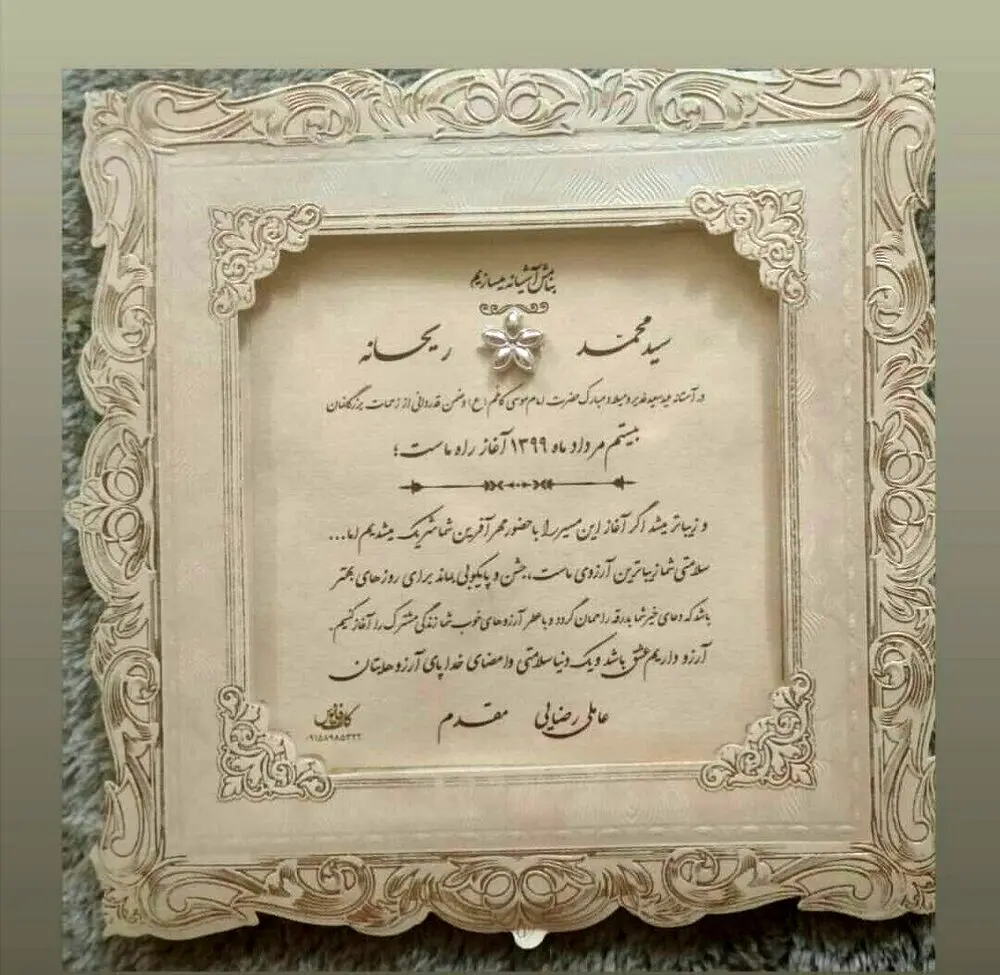 بنامش آشیانه میسازیم
سید محمد ریحانه
در آستانه عید سعید غدیر و میلاد مبارک حضرت امام موسی کاظم (ع) و ضمن قدردانی از زحمات بزرگانمان
بیستم مرداد ماه ۱۳۹۹ آغاز راه ماست؛
و زیباتر میشد اگر آغاز این مسیر را با حضور مهرآفرین شما شریک میشدیم اما...
سلامتی شما زیباترین آرزوی ماست، جشن و پایکوبی بماند برای روزهای بهتر
باشد که دعای خیر شما بدرقه راهمان گردد و با عطر آرزوهای خوب شما زندگی مشترک را آغاز کنیم.
آرزو داریم عشق باشد و یک دنیا سلامتی و امضای خدا پای آرزوهایتان
عاملی رضایی مقدم
۰۹۱۵۸۹۸۵۳۲۲